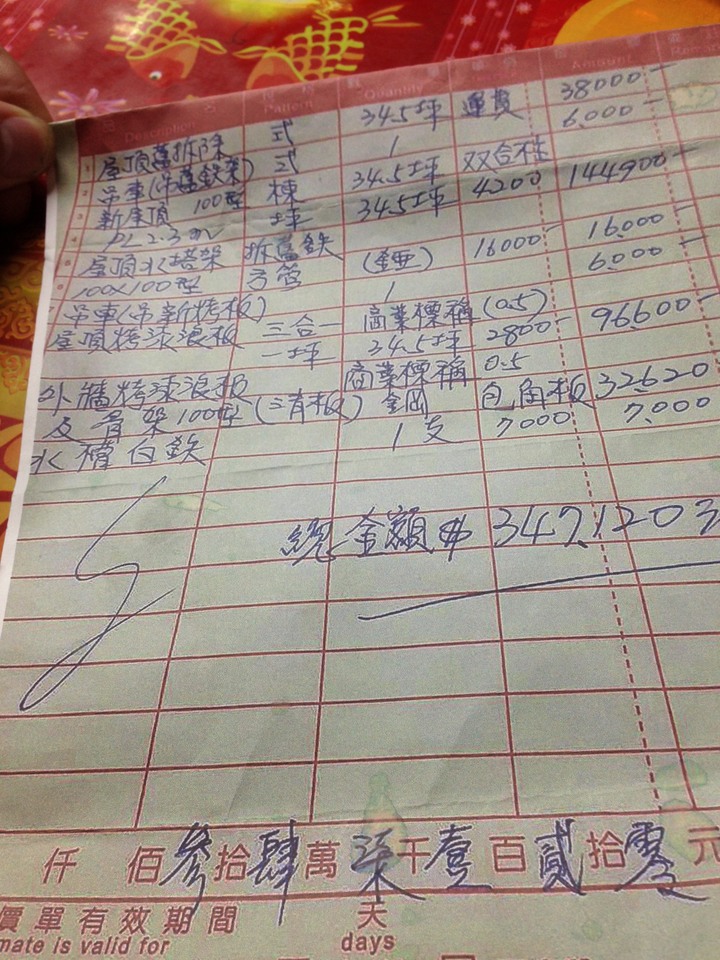 Description Pattern Quantity Amount Remark
1 屋頂舊拆除 式 34.5坪 運費 38000-
2 吊車(吊舊鉄架) 式 1 6.000-
3 新屋頂 100型 棟 34.5坪 双合柱
4 PL 2.3 m 坪 34.5坪 4200 144900-
5 屋頂水塔架 拆舊鉄
6 100x100型 方管 (錏) 16000- 16.000-
7 吊車(吊新烤板) 1 6.000-
屋頂烤漆浪板 三合一 商業標稱 (0.5)
一坪 34.5坪 2800- 96.600-
外牆烤漆浪板 商業標稱 0.5
及骨架100型 包角板 32.620
水槽白鉄 1支 7000 7.000
總金額 347.120
仟 佰 參 拾 肆 萬 柒 千 壹 百 貳 拾 零 元
價單有效期間 天
mate is valid for days